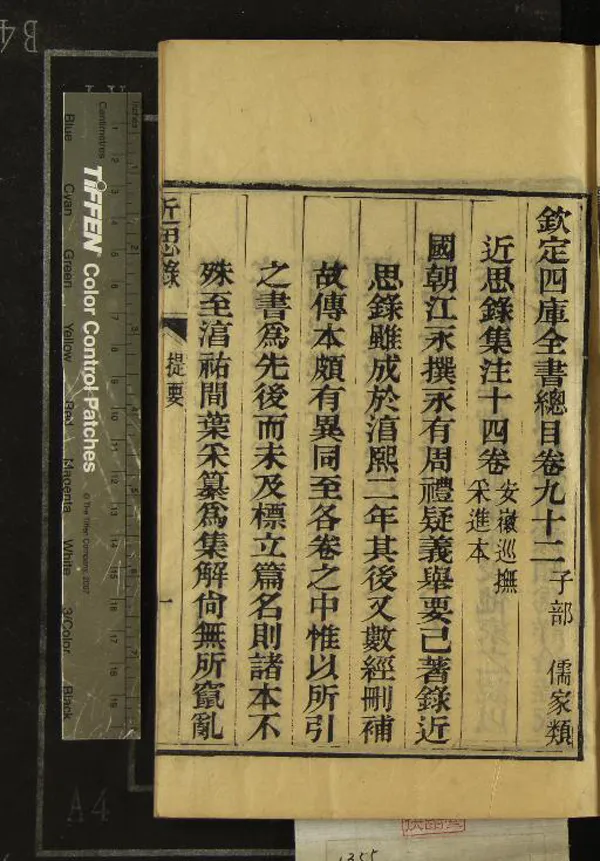 欽定四庫全書總目卷九十二 子部 儒家類
近思錄集注十四卷 安徽巡撫
采進本
國朝江永撰永有周禮疑義舉要已著錄近
思錄雖成於淳熙二年其後又數經刪補
故傳本頗有異同至各卷之中惟以所引
之書爲先後而未及標立篇名則諸本不
殊至淳祐間葉采纂爲集解尙無所竄亂
近思錄
提要
一
B4
Centimetres
Inches
TIFFEN Color Control Patches
© The Tiffen Company, 2007
Blue
Cyan
Green
Yellow
Red
Magenta
White
3/Color
Black
A4
1355